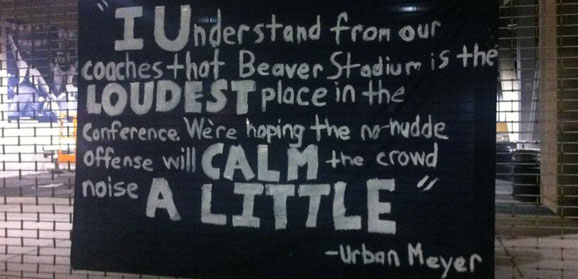 "I Understand from our
coaches that Beaver Stadium is the
LOUDEST place in the
Conference. We're hoping the no-hudde
offense will CALM the crowd
noise A LITTLE"
-Urban Meyer